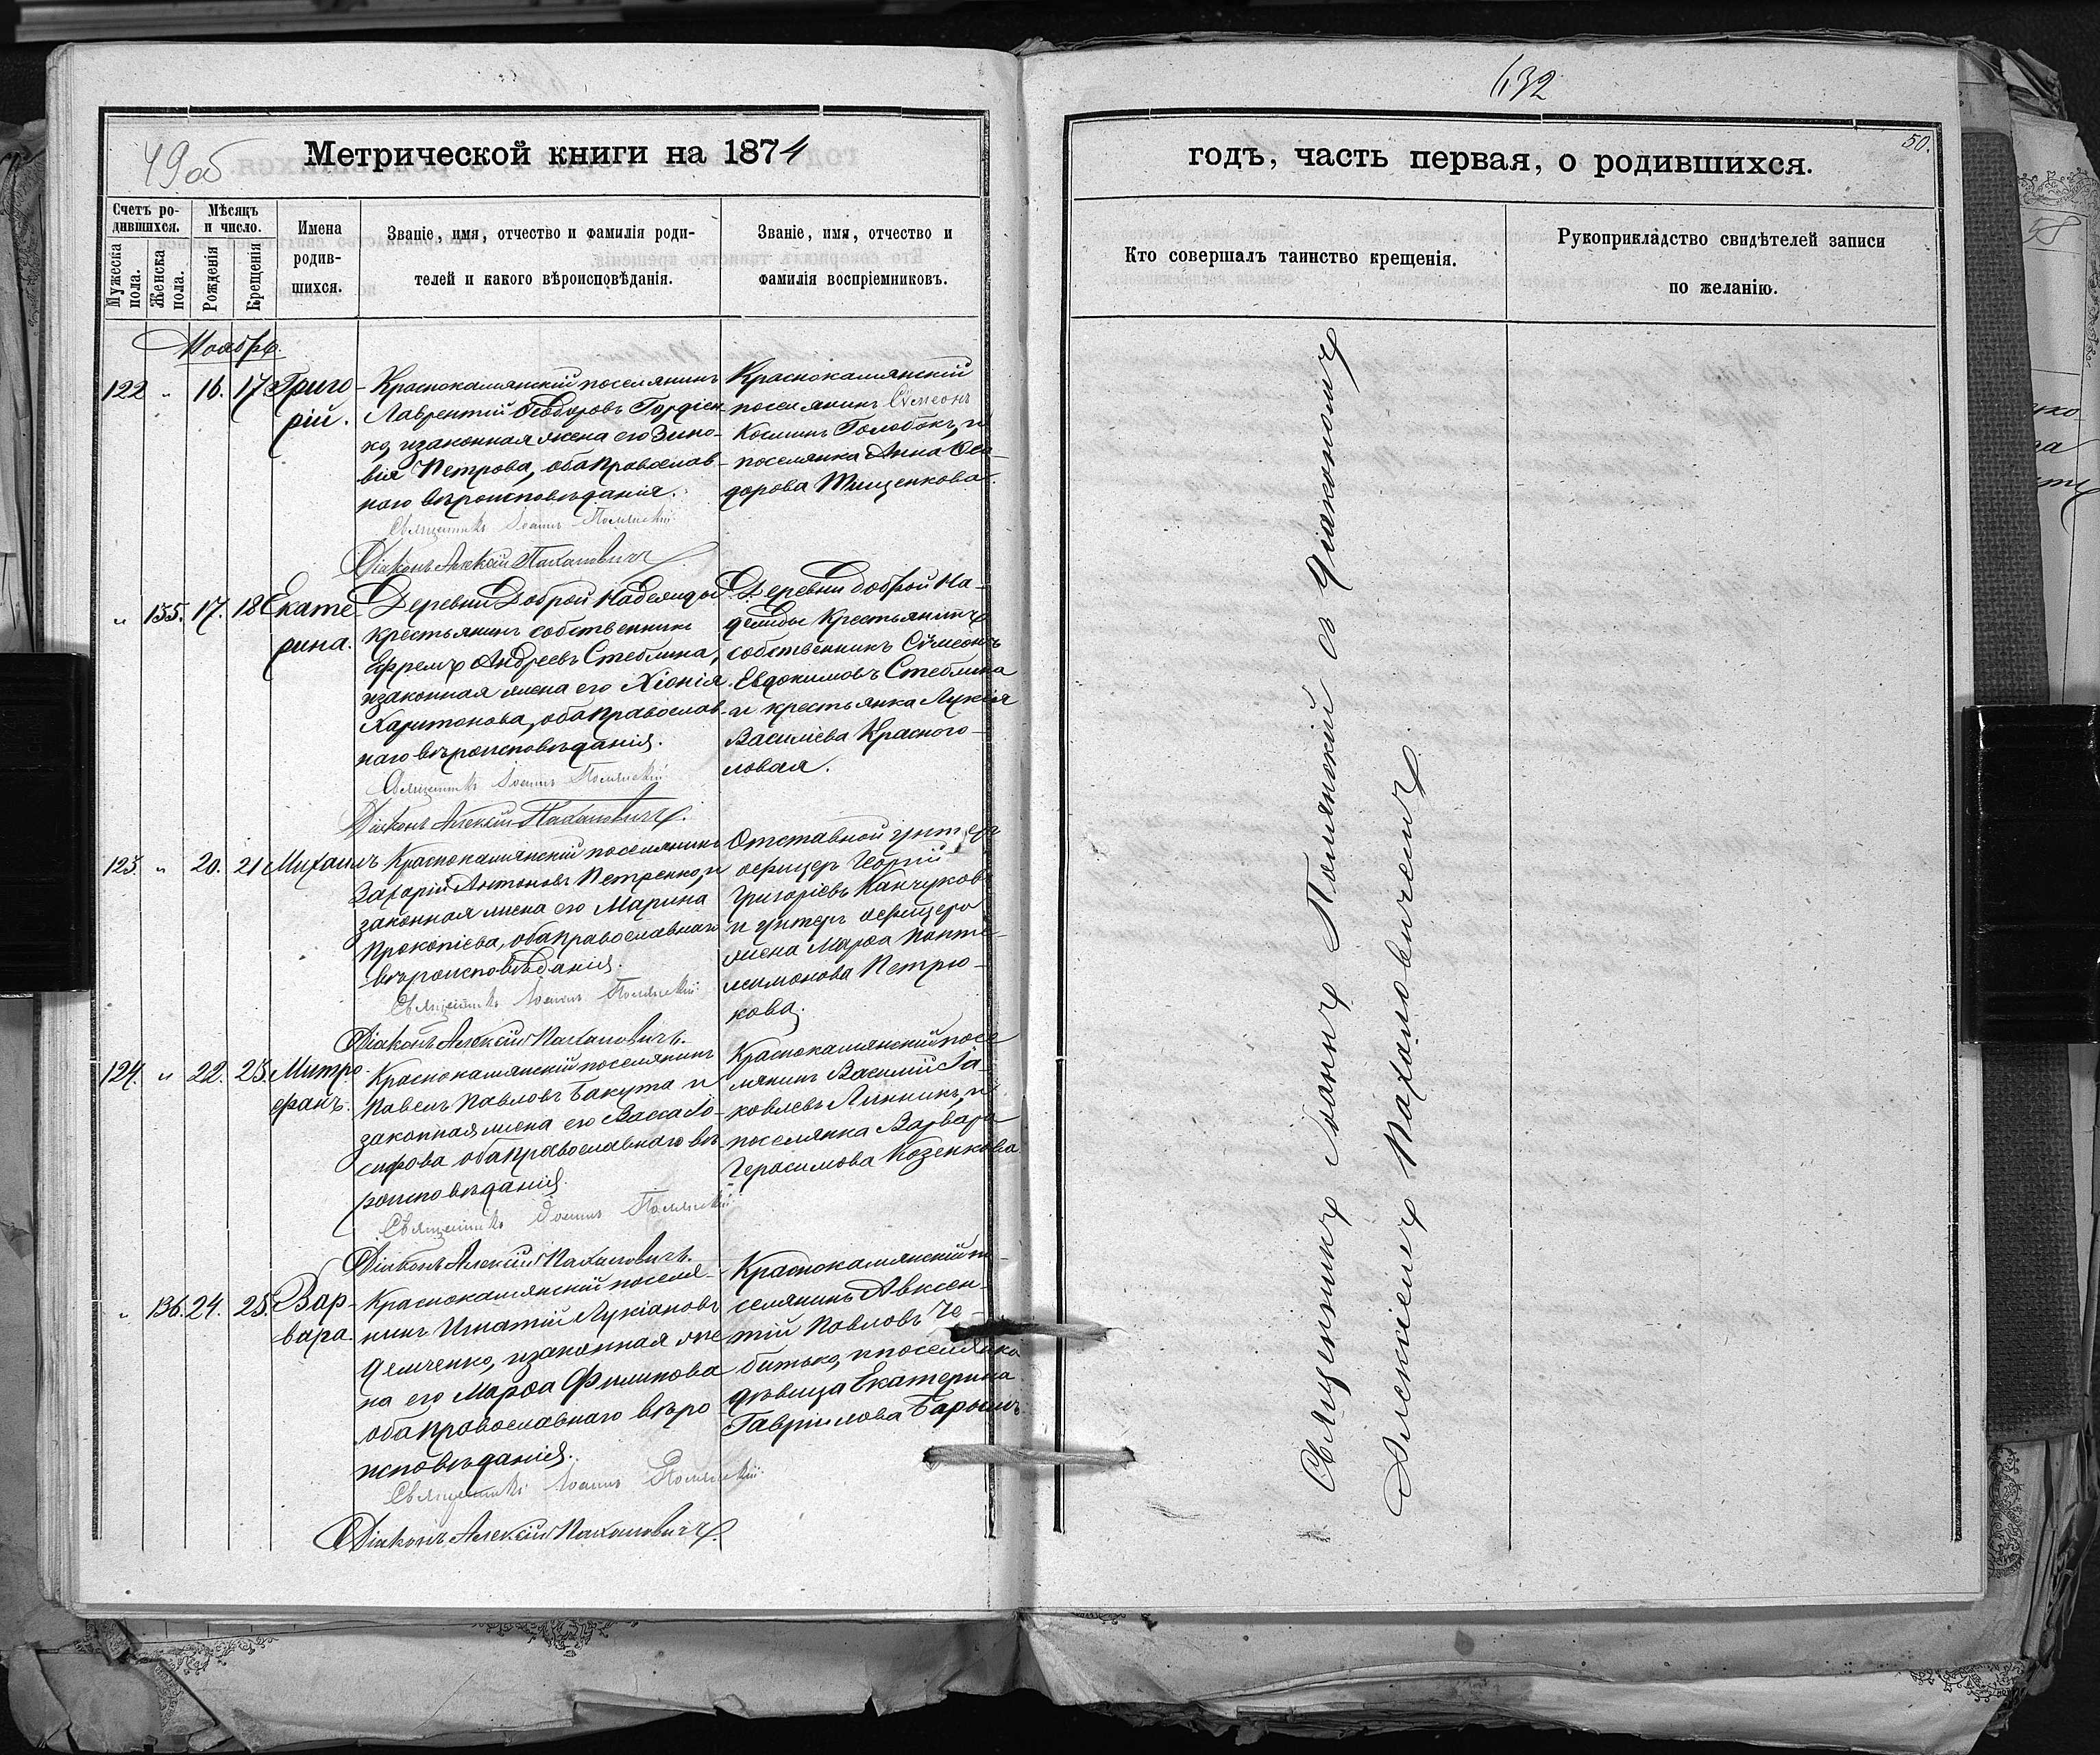 49 об
Метрической книги на 1874
Счетъ ро-
дившихся.
Мужеска пола.
Женска пола.
Мѣсяцъ
и число.
Рожденія
Крещенія
Имена
родив-
шихся.
Званіе, имя, отчество и фамилія роди-
телей и какого вѣроисповѣданія.
Званіе, имя, отчество и
фамилія воспріемниковъ.
Ноябрь.
122 " 16. 17 Григо-
рій.
Краснокамянскій поселянинъ
Лаврентій Ѳеодоровъ Гордіен-
ко, и законная жена его Зино-
вія Петрова, оба православ-
наго вѣроисповѣданія.
Священникъ Іоаннъ
Діаконъ Алексій Пахаловичъ
Краснокамянскій
поселянинъ Сѵмеонъ
Косминъ Голобокъ, и
поселянка Анна Ѳео-
дорова Тищенкова.
" 135. 17. 18 Екате-
рина.
Деревни Доброй Надежды
крестьянинъ собственникъ
Ефремъ Андреевъ Стеблина,
и законная жена его Хіонія
Харитонова, оба православ-
наго вѣроисповѣданія.
Священникъ Іоаннъ
Діаконъ Алексій Пахаловичъ.
Деревни Доброй На-
дежды крестьянинъ
собственникъ Сѵмеонъ
Евдокимовъ Стеблина
и крестьянка Лукія
Василіева Красного-
ловая.
123. " 20. 21 Михаилъ
Краснокамянскій поселянинъ
Захарій Антоновъ Петренко, и
законная жена его Марина
Прокопіева, оба православнаго
вѣроисповѣданія.
Священникъ Іоаннъ
Діаконъ Алексій Пахаловичъ.
Отставной унтеръ
офицеръ Георгій
Григоріевъ Канчуковъ
и унтеръ офицера
жена Марѳа Панте-
леимонова Петрю-
кова.
124. " 22. 23. Митро-
фанъ.
Краснокамянскій поселянинъ
Павелъ Павловъ Бакута и
законная жена его Васса Іо-
сифова оба православнаго вѣ-
роисповѣданія.
Священникъ Іоаннъ
Діаконъ Алексій Пахаловичъ.
Краснокамянскій посе-
лянинъ Василій Іа-
ковлевъ Линникъ, и
поселянка Варвара
Герасимова Козенкова.
" 136. 24. 25. Вар-
вара.
Краснокамянскій поселя-
нинъ Игнатій Лукіановъ
Демченко, и законная же-
на его Марѳа Филипова
оба православнаго вѣро-
исповѣданія.
Священникъ Іоаннъ
Діаконъ Алексій Пахаловичъ.
Краснокамянскій по-
селянинъ Авксен-
тій Павловъ Че-
битько, и поселянка
дѣвица Екатерина
Гавріилова
632
50.
годъ, часть первая, о родившихся.
Кто совершалъ таинство крещенія.
Рукоприкладство свидѣтелей записи
по желанію.
Священникъ Іоаннъ съ діакономъ
Алексіемъ Пахаловичемъ.
58